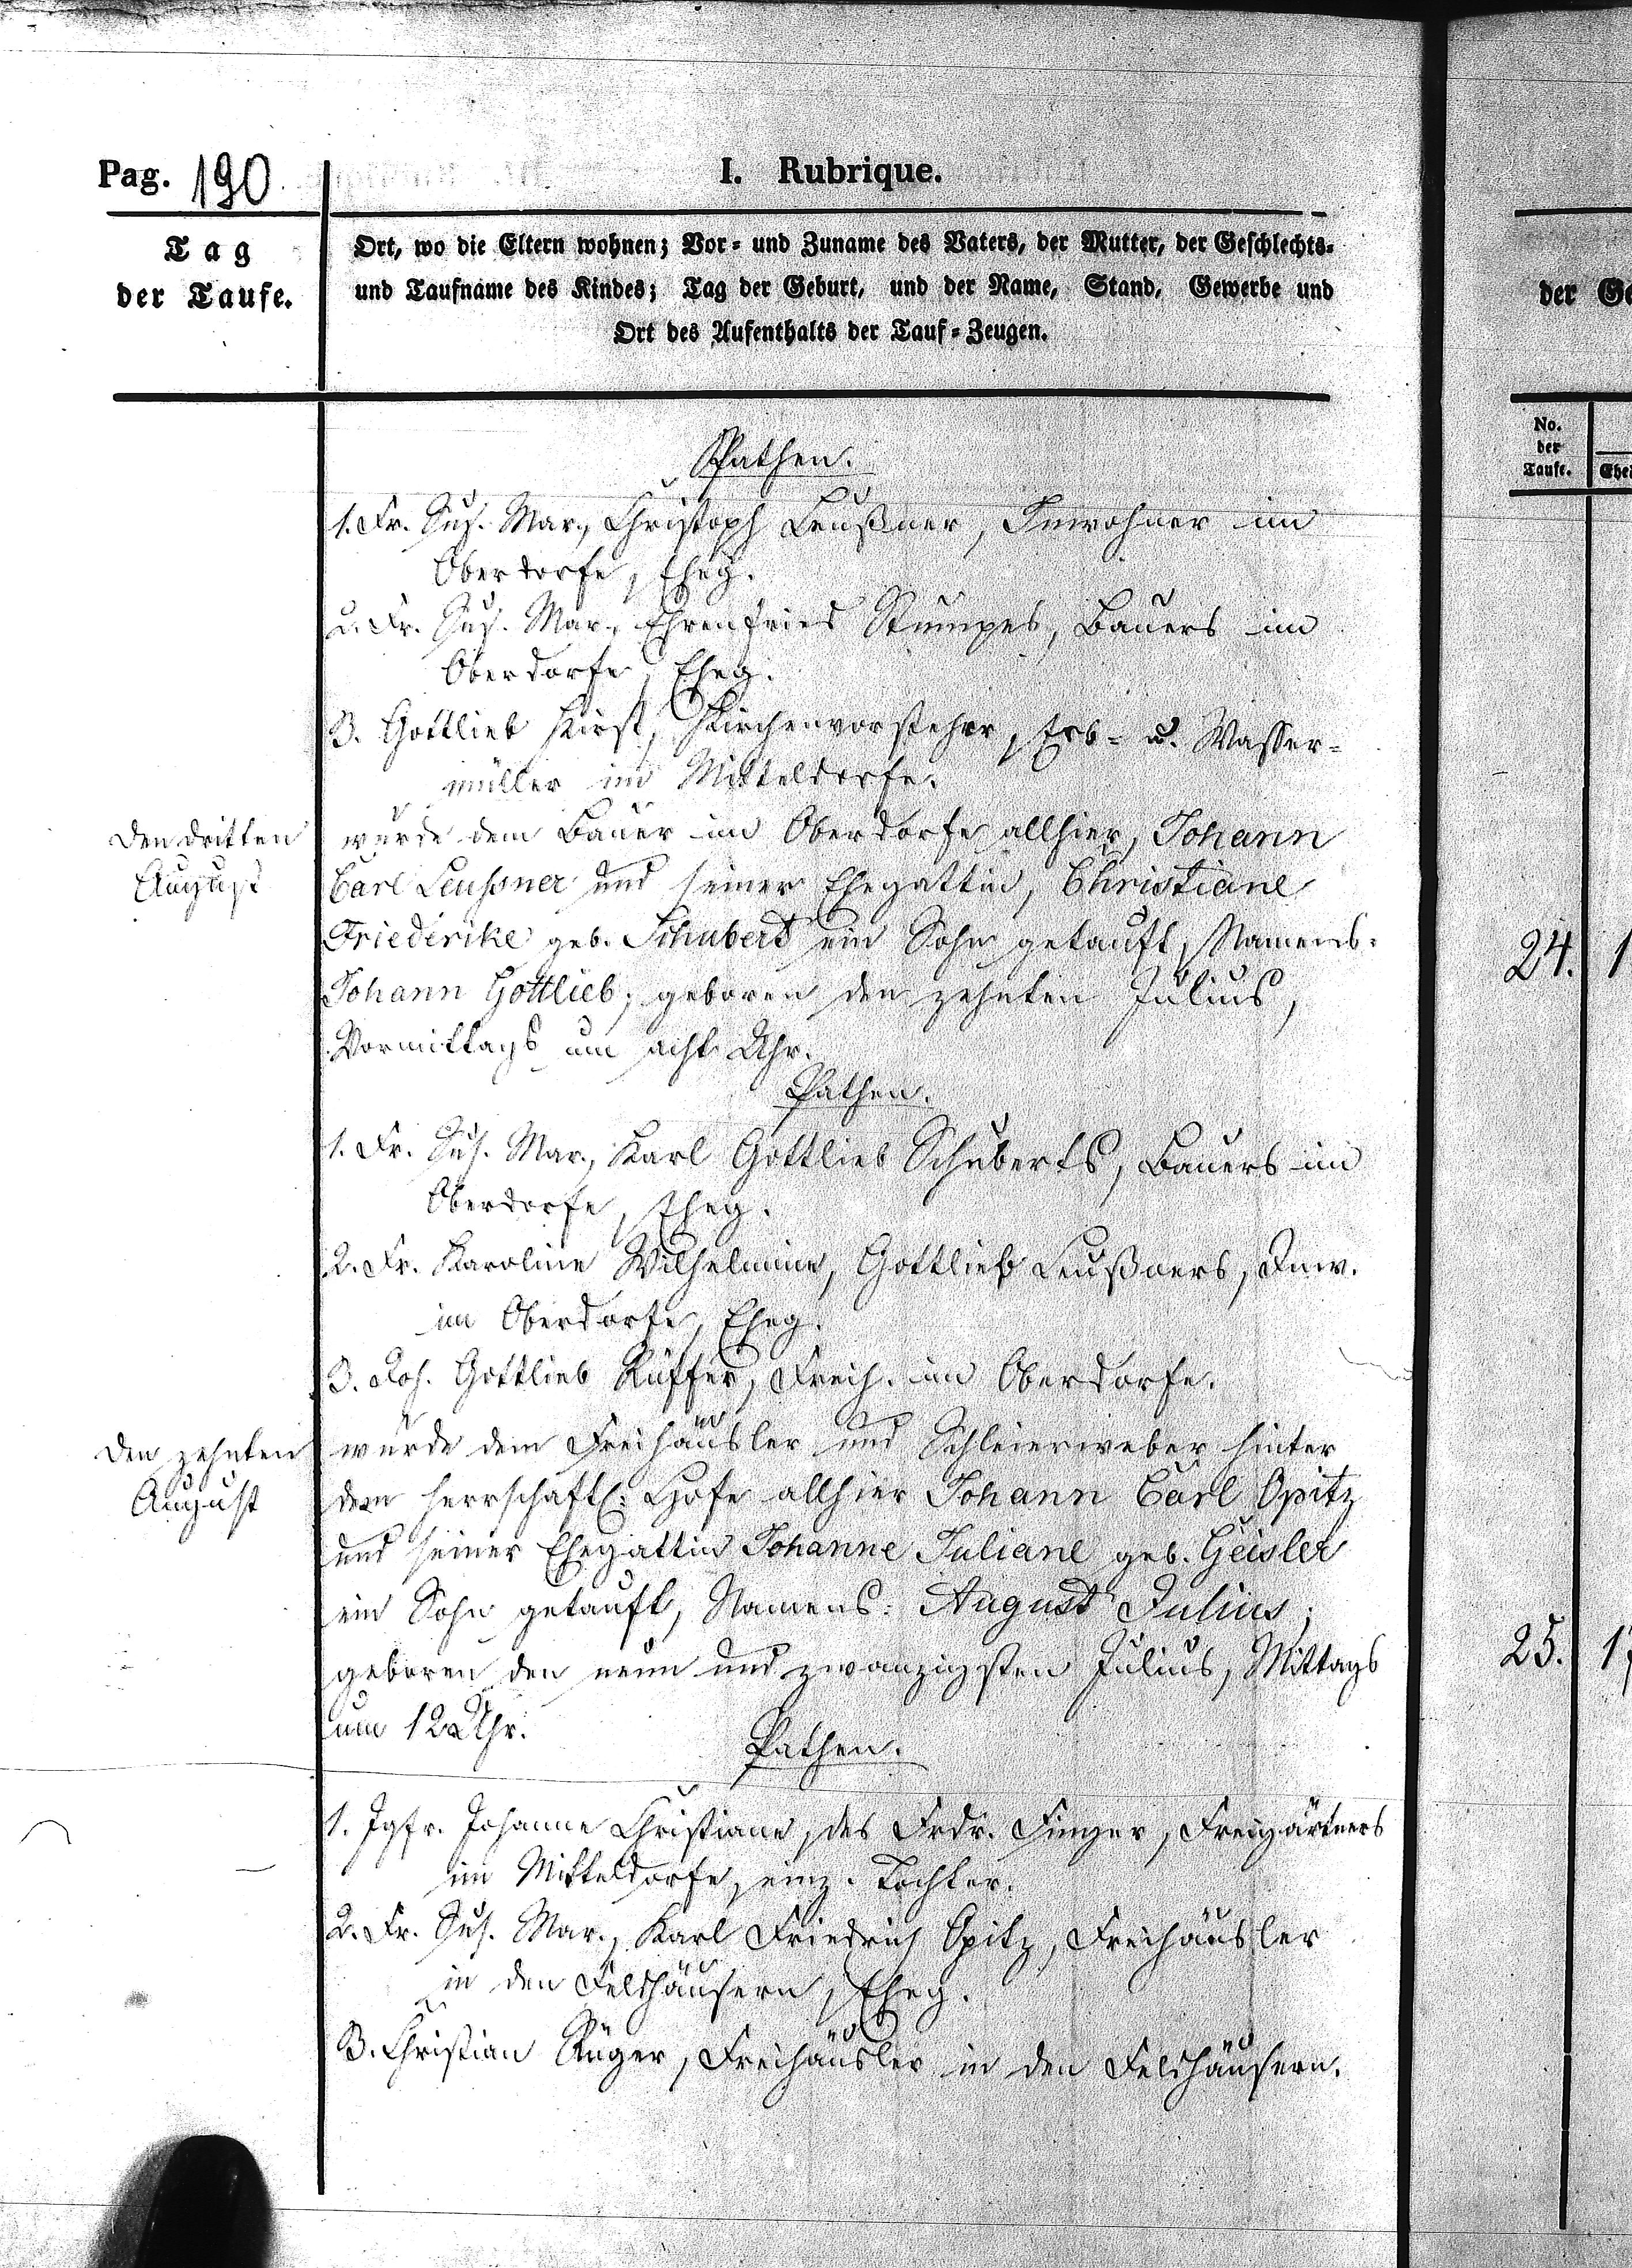 Pag. 190
I. Rubrique.
Tag
der Taufe.
Ort, wo die Eltern wohnen; Vor- und Zuname des Vaters, der Mutter, der Geschlechts-
und Taufname des Kindes; Tag der Geburt, und der Name, Stand, Gewerbe und
Ort des Aufenthalts der Tauf-Zeugen.
Pathen.
1. Fr. Sus. Mar., Christoph Leußner, Inwohner im
Oberdorfe, Eheg.
2. Fr. Sus. Mar., Ehrenfried Stumpes, Bauers im
Oberdorfe, Eheg.
3. Gottlieb Hirst, Kirchenvorsteher, Erb- u. Wasser-
müller im Mitteldorfe.
Den dritten
August
wurde dem Bauer im Oberdorfe allhier, Johann
Carl Leussner und seiner Ehegattin, Christiane
Friederike geb. Schubert ein Sohn getauft, Namens:
Johann Gottlieb; geboren den zehnten Julius,
Vormittags um acht Uhr.
Pathen.
1. Fr. Sus. Mar., Karl Gottlieb Schuberts, Bauers im
Oberdorfe, Eheg.
2. Fr. Karoline Wilhelmine, Gottlieb Leußners, Inw.
im Oberdorfe, Eheg.
3. Joh. Gottlieb Rüffer, Freih. im Oberdorfe.
Den zehnten
August
wurde dem Freihäusler und Schleierweber hinter
dem herrschaftl: Hofe allhier Johann Carl Opitz
und seiner Ehegattin Johanne Juliane geb. Geisler
ein Sohn getauft, Namens: August Julius;
geboren den neun und zwanzigsten Julius, Mittags
um 12 Uhr.
Pathen.
1. Jgfr. Johanne Christiane, des Frdr. Finger, Freigärtners
im Mitteldorfe, einz. Tochter.
2. Fr. Sus. Mar., Karl Friedrich Opitz, Freihäusler
in den Feldhäusern, Eheg.
3. Christian Rüger, Freihäusler in den Feldhäusern.
der Ge
No.
der
Taufe.
Ehe
24. 1
25. 17